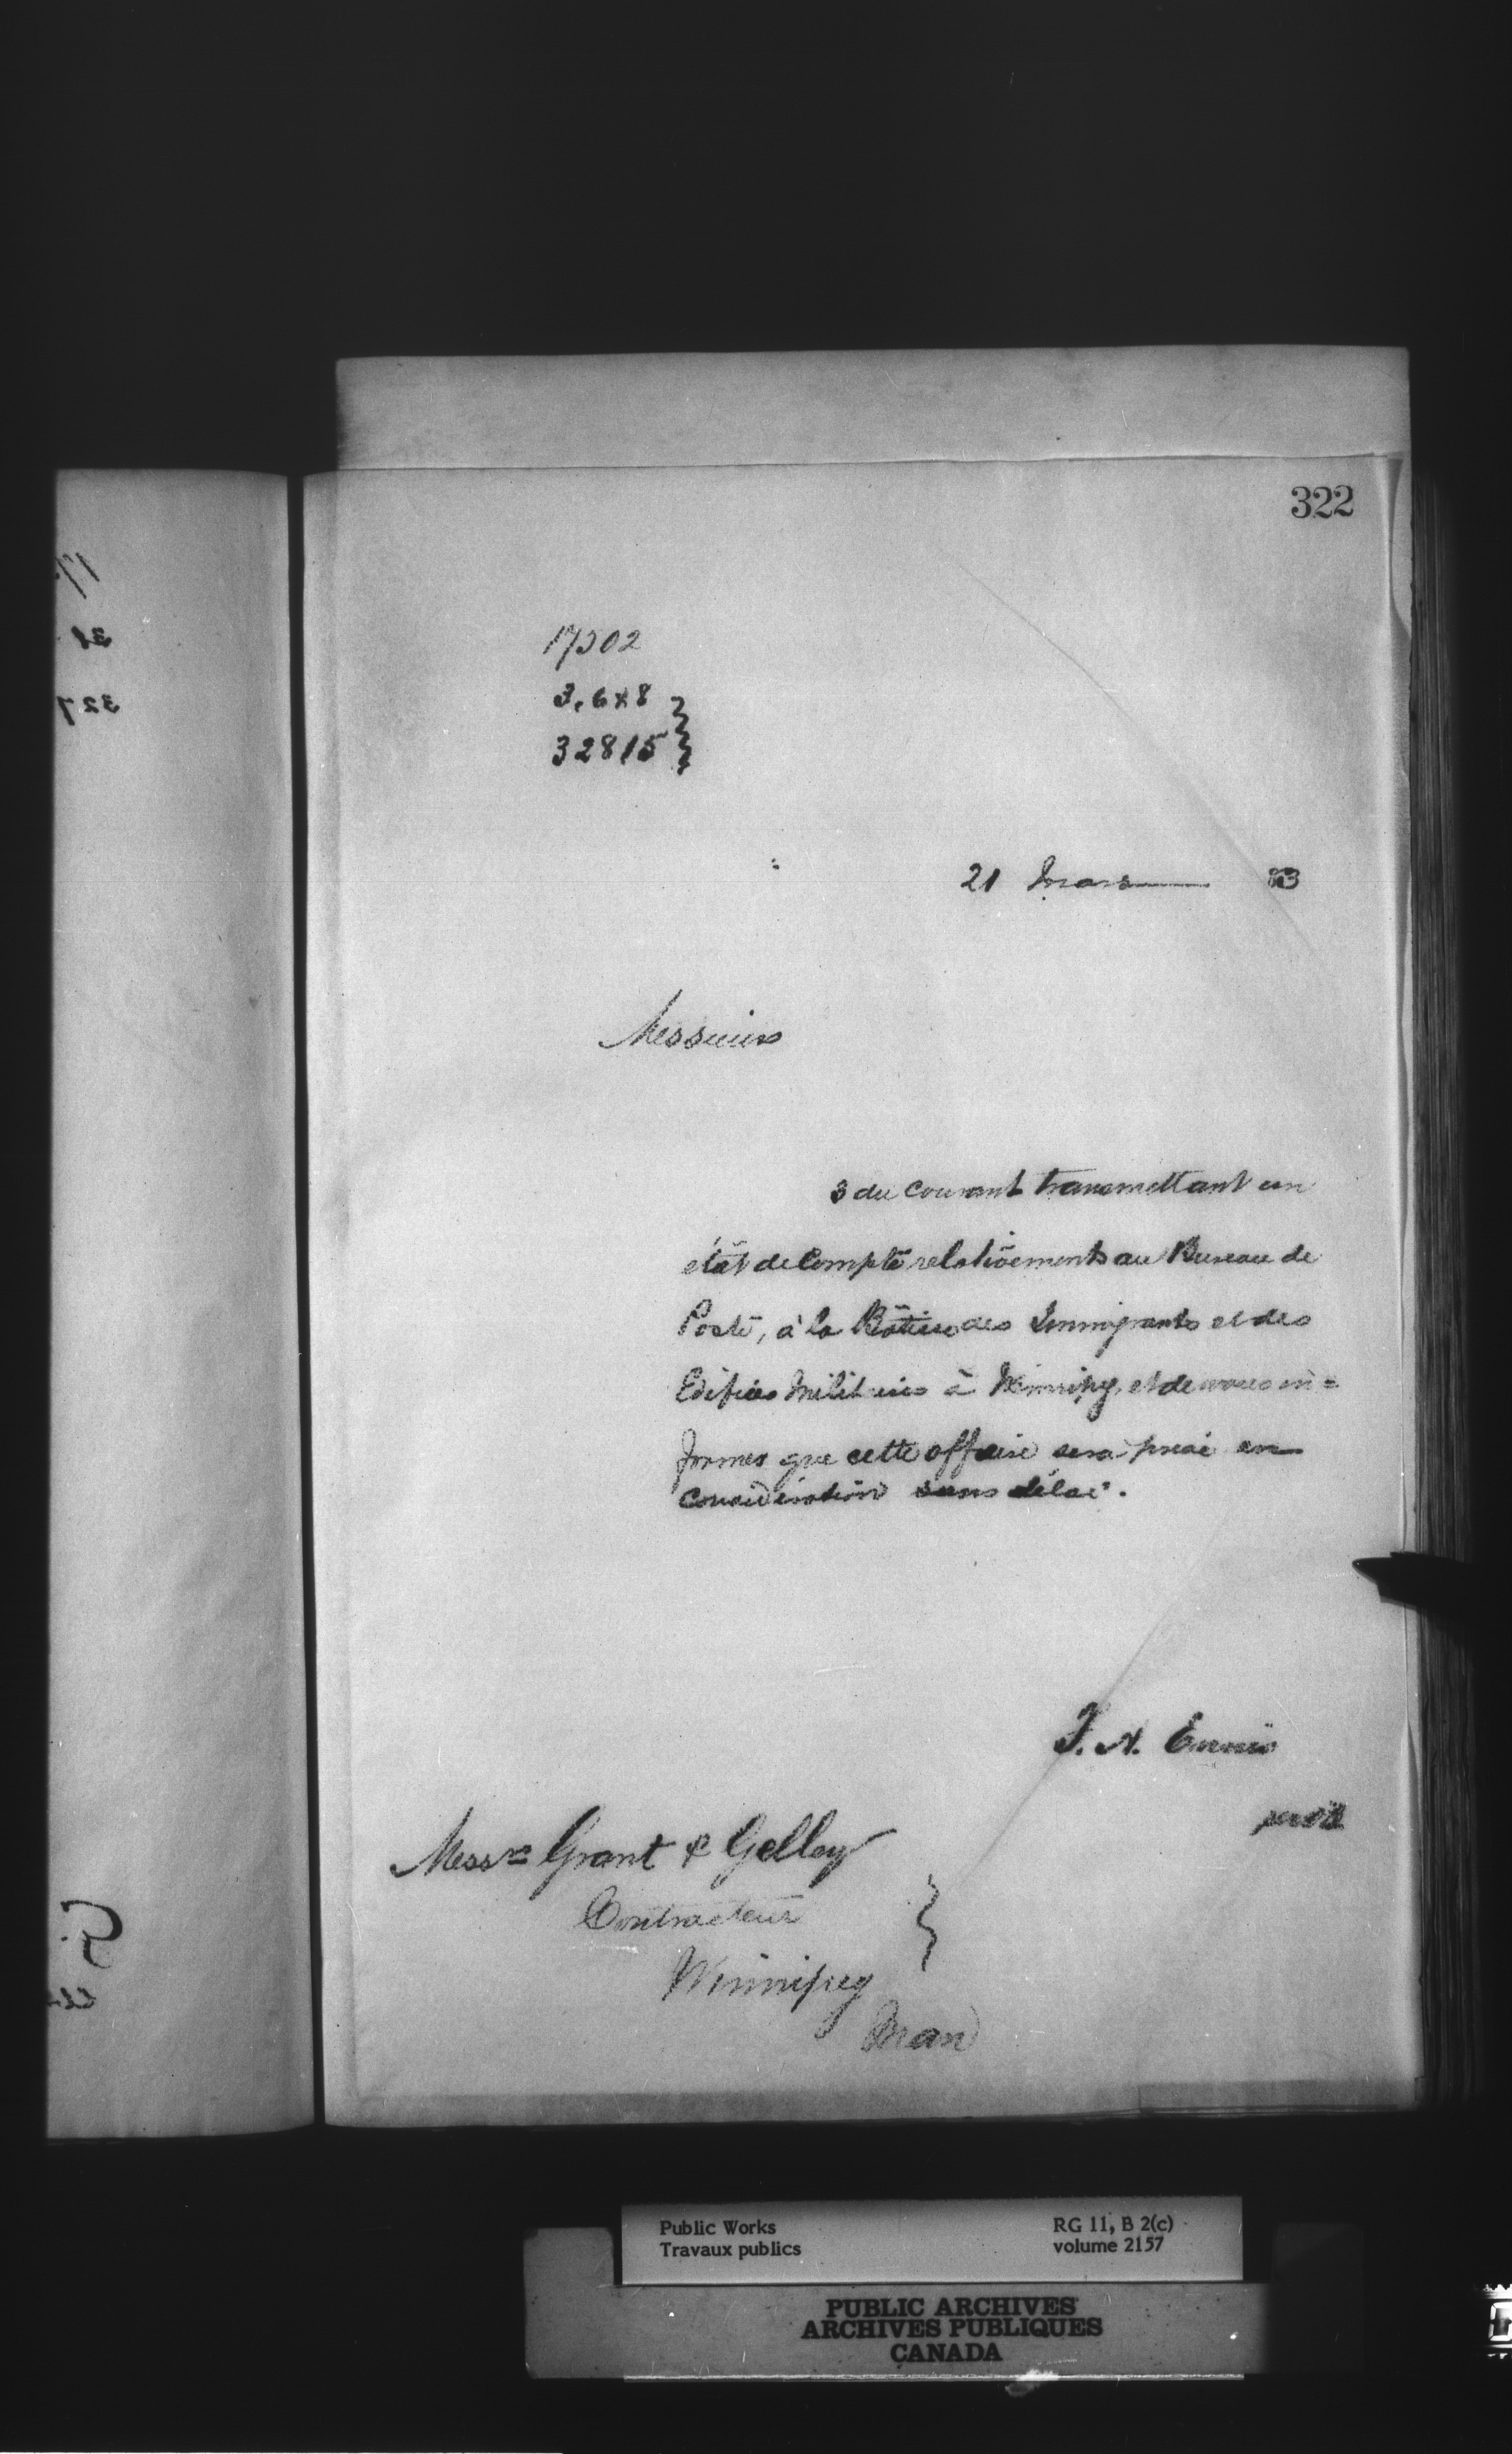 322
17302
32815
21 Mars 83
Messieurs
3 du courant transmettant un
état de Compte relativements au Bureau de
Poste, à la Bâtisse des Immigrants et des
Edifices Militaires à Winnipeg, et de vous in=
former que cette affaire sera prise en
considération sans délai.
F. H. Ennis
Messrs Grant & Gelley
Contracteur
Winnipeg
Man
Public Works
Travaux publics
RG 11, B 2(c)
volume 2157
PUBLIC ARCHIVES
ARCHIVES PUBLIQUES
CANADA